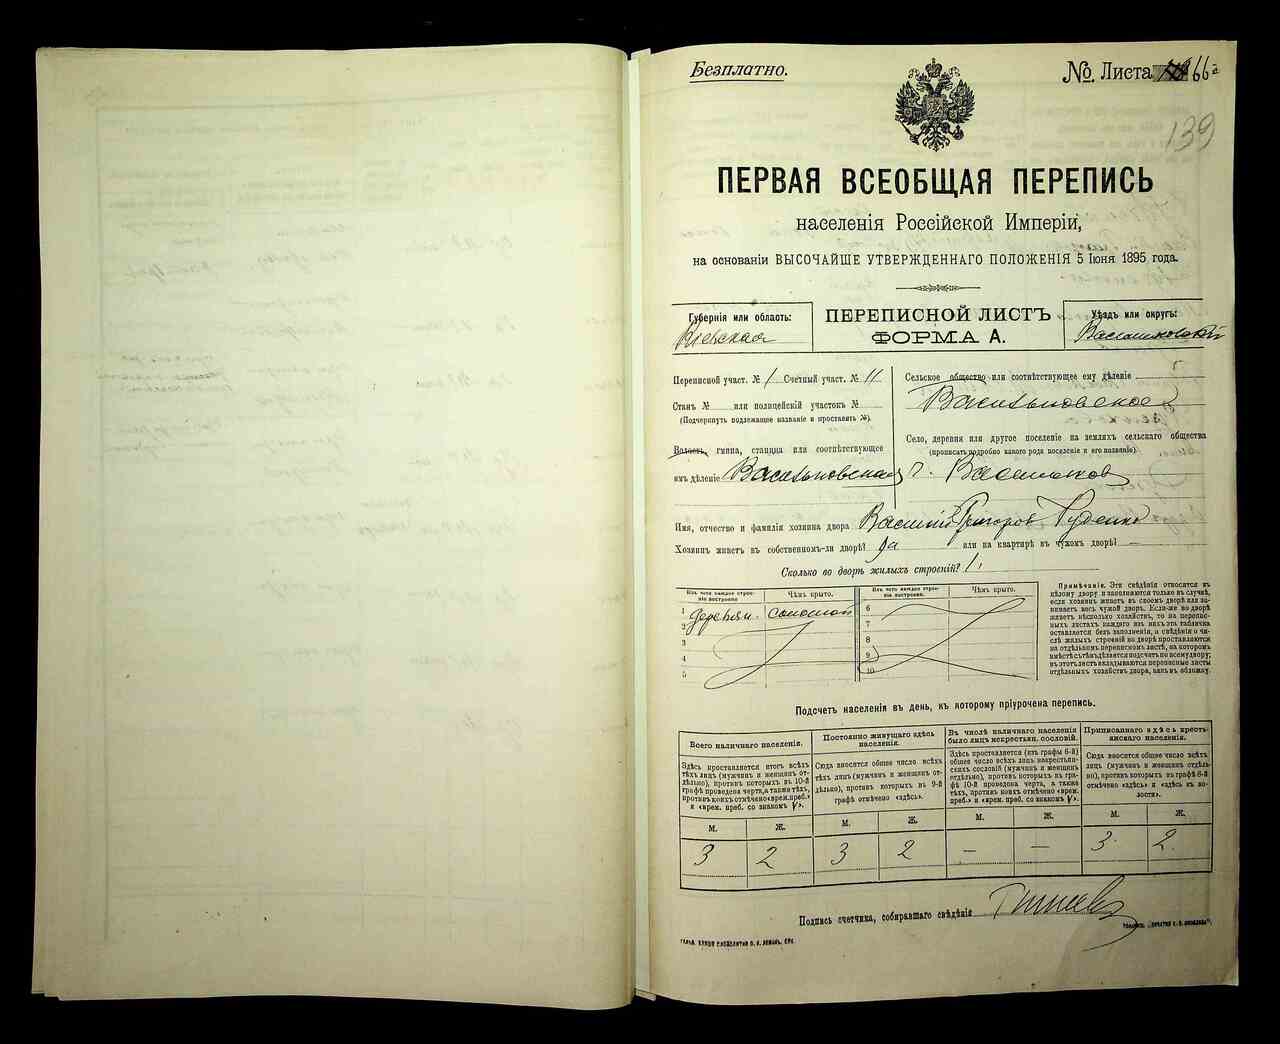 Безплатно.
№ Листа 66а
139
ПЕРВАЯ ВСЕОБЩАЯ ПЕРЕПИСЬ
населенія Россійской Имперіи,
на основаніи ВЫСОЧАЙШЕ УТВЕРЖДЕННАГО ПОЛОЖЕНІЯ 5 Іюня 1895 года.
Губернія или область:
Кіевская
ПЕРЕПИСНОЙ ЛИСТЪ
ФОРМА А.
Уѣздъ или округъ:
Васильковскій
Переписной участ. № 1 Счетный участ. № 11
Станъ № или полицейскій участокъ №
(Подчеркнуть подлежащее названіе и проставить №).
Волость, гмина, станица или соотвѣтствующее
имъ дѣленіе Васильковская
Сельское общество или соотвѣтствующее ему дѣленіе
Васильковское
Село, деревня или другое поселеніе на земляхъ сельскаго общества
(прописать подробно какого рода поселеніе и его названіе)
г. Васильков
Имя, отчество и фамилія хозяина двора Василій Григоров
Хозяинъ живетъ въ собственномъ-ли дворѣ? да или на квартирѣ въ чужомъ дворѣ? —
Сколько во дворѣ жилыхъ строеній? 1
Изъ чего каждое строеніе построено
Чѣмъ крыто.
Изъ чего каждое строеніе построено.
Чѣмъ крыто.
1 деревян. соломой
2
3
4
5
6
7
8
9
10
Примѣчаніе. Эти свѣдѣнія относятся къ
цѣлому двору, и заполняются только въ случаѣ,
если хозяинъ живетъ въ своемъ дворѣ или занимаетъ
весь чужой дворъ. Если-же во дворѣ
живетъ нѣсколько хозяйствъ, то на переписныхъ
листахъ каждаго изъ нихъ эта табличка
оставляется безъ заполненія, а свѣдѣнія о числѣ
жилыхъ строеній во дворѣ проставляются
на отдѣльномъ переписномъ листѣ, на которомъ
вмѣстѣ съ тѣмъ дѣлается подсчетъ по всему двору;
въ этотъ листъ вкладываются переписные листы
отдѣльныхъ хозяйствъ двора, какъ въ обложку.
Подсчетъ населенія въ день, къ которому пріурочена перепись.
Всего наличнаго населенія.
Постоянно живущаго здѣсь населенія.
Въ числѣ наличнаго населенія было лицъ некрестьян. сословій.
Приписаннаго здѣсь крестьянскаго населенія.
Здѣсь проставляется итогъ всѣхъ тѣхъ лицъ (мужчинъ и женщинъ отдѣльно), противъ которыхъ въ 10-й графѣ проведена черта, а также тѣхъ, противъ коихъ отмѣчено «врем. преб.» и «врем. преб. со знакомъ V».
Сюда вносится общее число всѣхъ тѣхъ лицъ (мужчинъ и женщинъ отдѣльно), противъ которыхъ въ 9-й графѣ отмѣчено «здѣсь».
Здѣсь проставляется (изъ графы 6-й) общее число всѣхъ лицъ некрестьянскихъ сословій (мужчинъ и женщинъ отдѣльно), противъ которыхъ въ графѣ 10-й проведена черта, а также тѣхъ, противъ коихъ отмѣчено «врем. преб.» и «врем. преб. со знакомъ V».
Сюда вносится общее число всѣхъ лицъ (мужчинъ и женщинъ отдѣльно), противъ которыхъ въ графѣ 8-й отмѣчено «здѣсь» и «здѣсь въ волости».
М. Ж. М. Ж. М. Ж. М. Ж.
3 2 3 2 — — 3 2
Подпись счетчика, собиравшаго свѣдѣнія